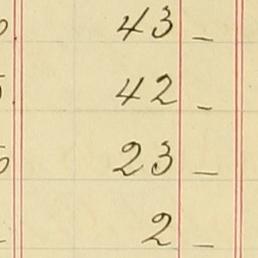 43 –
42 –
23 –
2 –